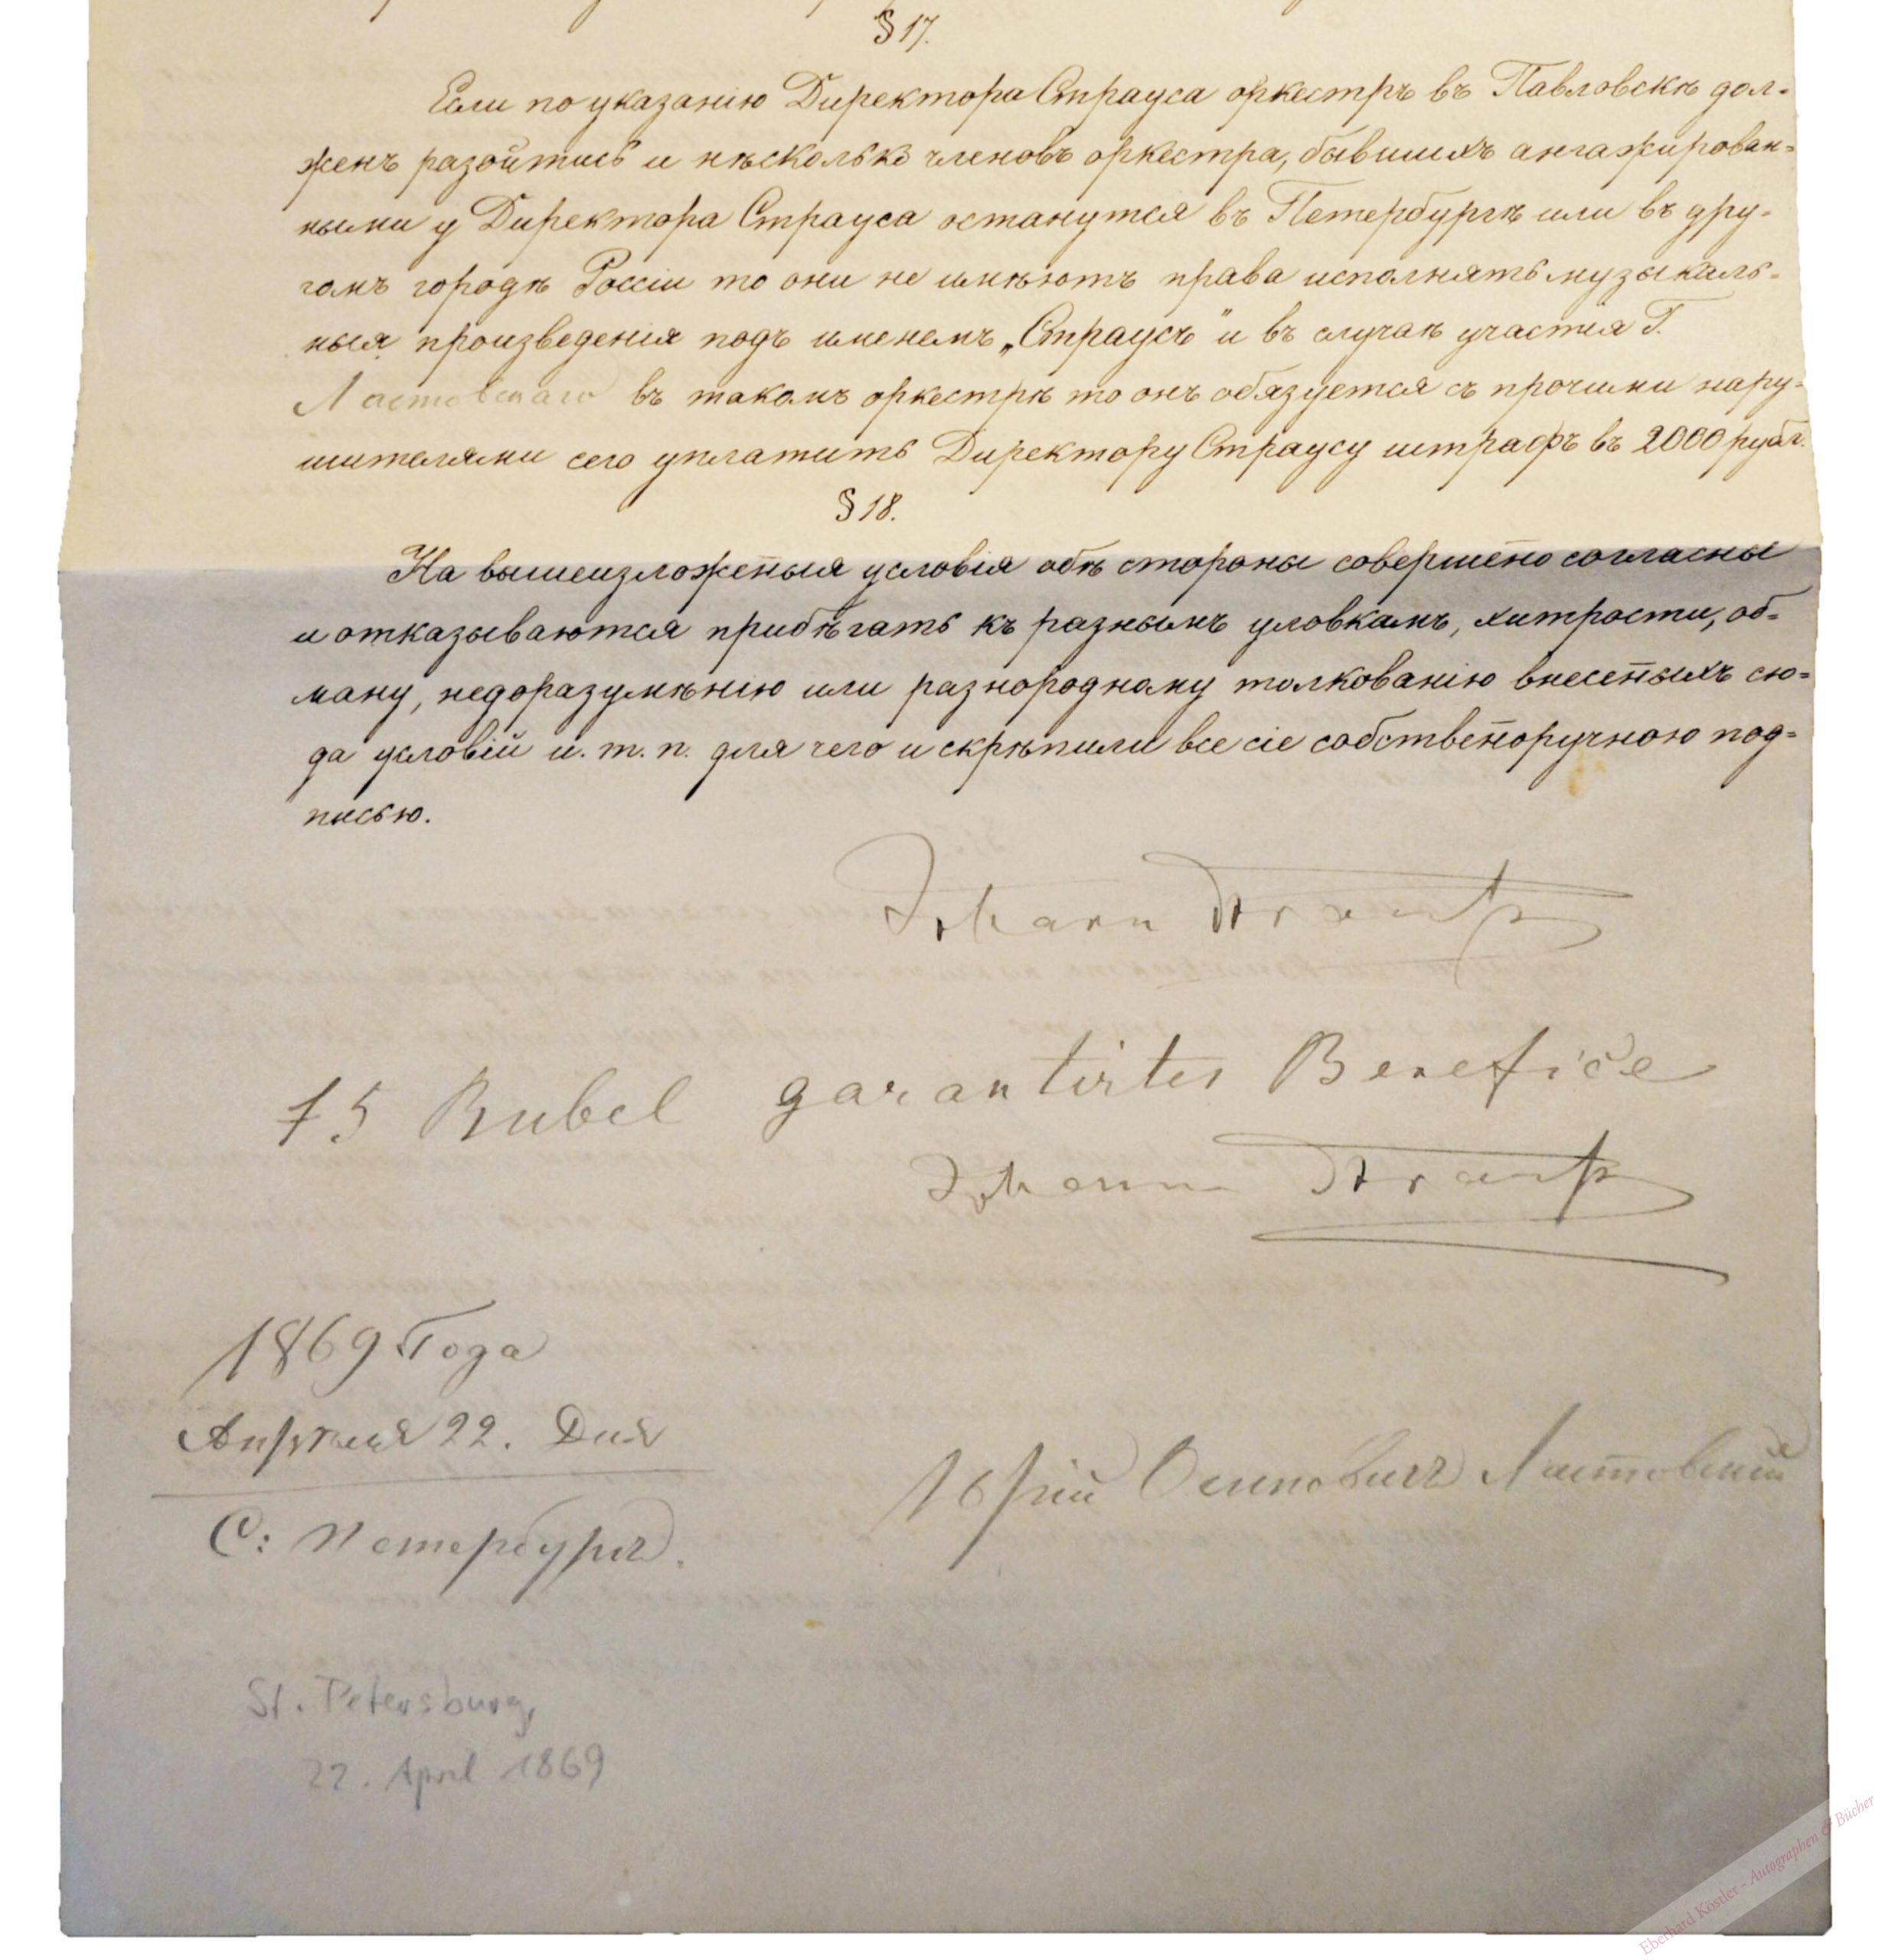 § 17.
Если по указанію Директора Страуса оркестръ въ Павловскѣ дол-
женъ разойтись и нѣсколько членовъ оркестра, бывшихъ ангажирован-
ными у Директора Страуса останутся въ Петербургѣ или въ дру-
гомъ городѣ Россіи то они не имѣютъ права исполнять музыкаль-
ныя произведенія подъ именемъ „Страусъ" и въ случаѣ участія Г.
Лястовскаго въ такомъ оркестрѣ то онъ обязуется съ прочими нару-
шителями сего уплатить Директору Страусу штрафъ въ 2000 рубл.
§ 18.
На вышеизложеныя условія обѣ стороны совершено согласны
и отказываются прибѣгать къ разнымъ уловкамъ, хитрости, об-
ману, недоразумѣнію или разнородному толкованію внесеныхъ сю-
да условій и. т. п. для чего и скрѣпили все сіе собственоручною под-
писью.
Johann Strauß
75 Rubel garantirtes Benefice
Johann Strauß
1869 Года
Апрѣля 22. Дня
С: Петербургъ.
Юрій Осиповичъ Лястовскій
St. Petersburg,
22. April 1869
Eberhard Köstler - Autographen & Bücher